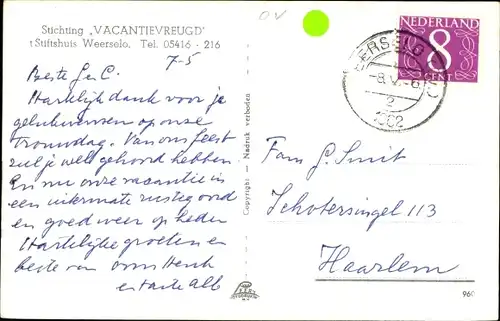 Stichting „VACANTIEVREUGD"
't Stiftshuis Weerselo. Tel. 05416 - 216
OV
7-5
Beste G. en C.
Hartelijk dank voor je
gelukwensen op onze
trouwdag. Van ons feest
zul je wel gehoord hebben.
En nu onze vacantie in
een uitermate rustig oord
en goed weer op heden
Hartelijke groeten en
beste van oom Henk
en tante Alb
Copyright - Nadruk verboden
NEDERLAND
8
CENT
WEERSELO
-8.V.
2
1962
Fam G. Smit
Schotersingel 113
Haarlem
960